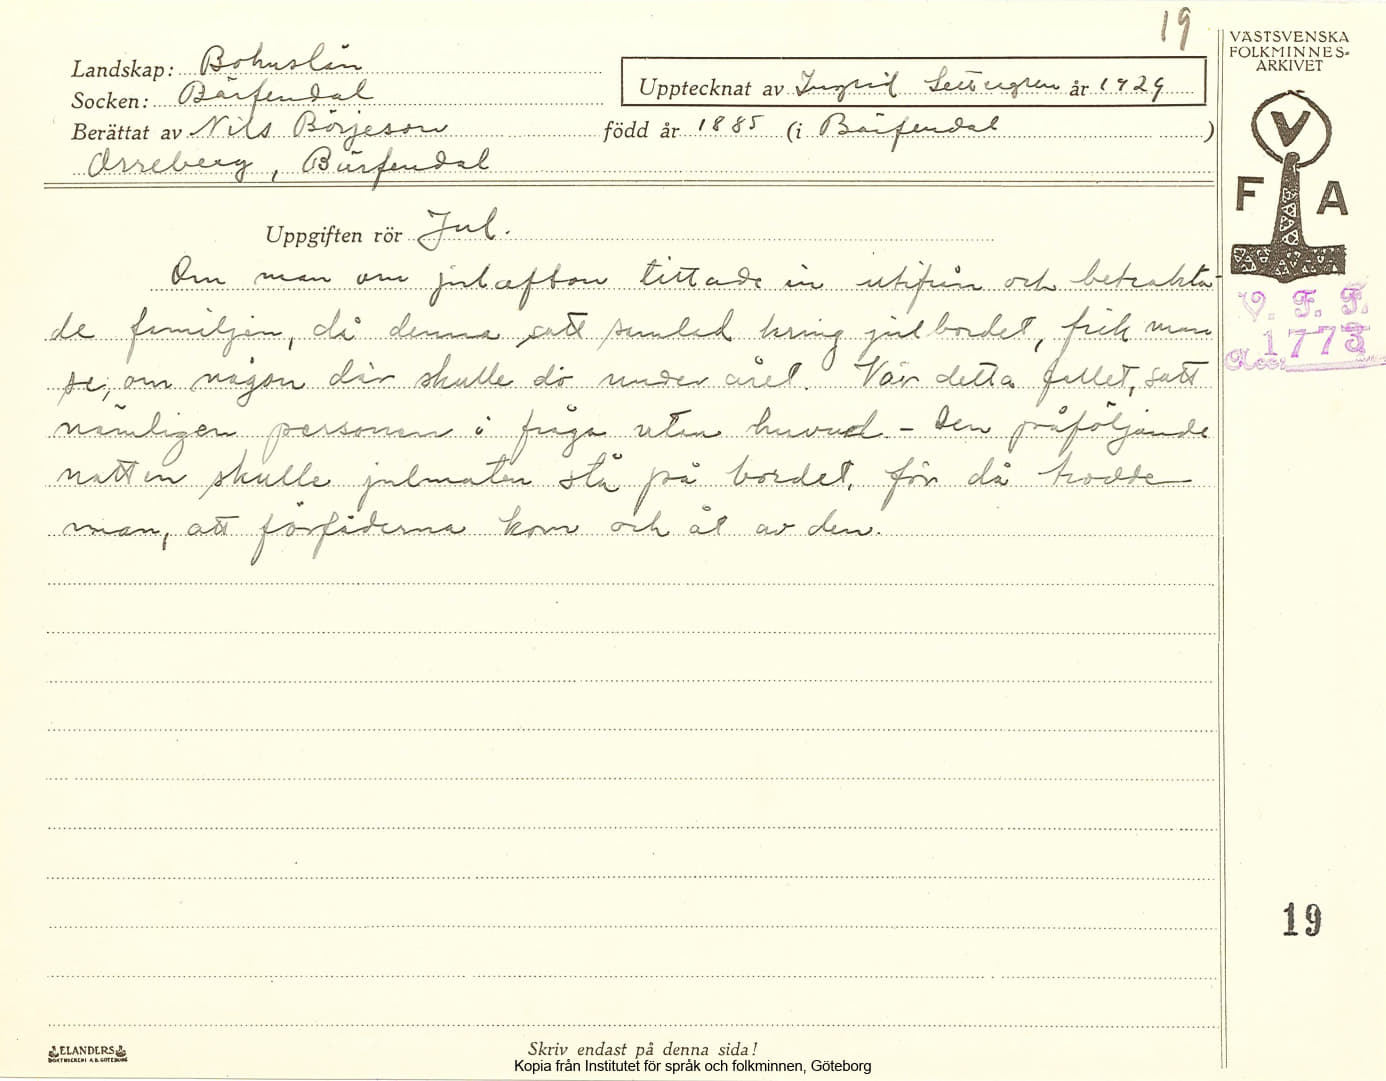 19
VÄSTSVENSKA
FOLKMINNES-
ARKIVET
Landskap: Bohuslän
Socken: Bärfendal
Upptecknat av Ingrid Settergren år 1929
Berättat av Nils Börjeson född år 1885 (i Bärfendal )
Orreberg, Bärfendal
V
F A
Uppgiften rör Jul.
Om man om julafton tittade in utifrån och betrakta-
de familjen, då denna satt samlad kring julbordet, fick man
se, om någon där skulle dö under året. Var detta fallet, satt
nämligen personen i fråga utan huvud. - Den påföljande
natten skulle julmaten stå på bordet, för då trodde
man, att förfäderna kom och åt av den.
V. F. F.
Acc. 1773
19
ELANDERS
BOKTRYCKERI A.B. GÖTEBORG
Skriv endast på denna sida!
Kopia från Institutet för språk och folkminnen, Göteborg